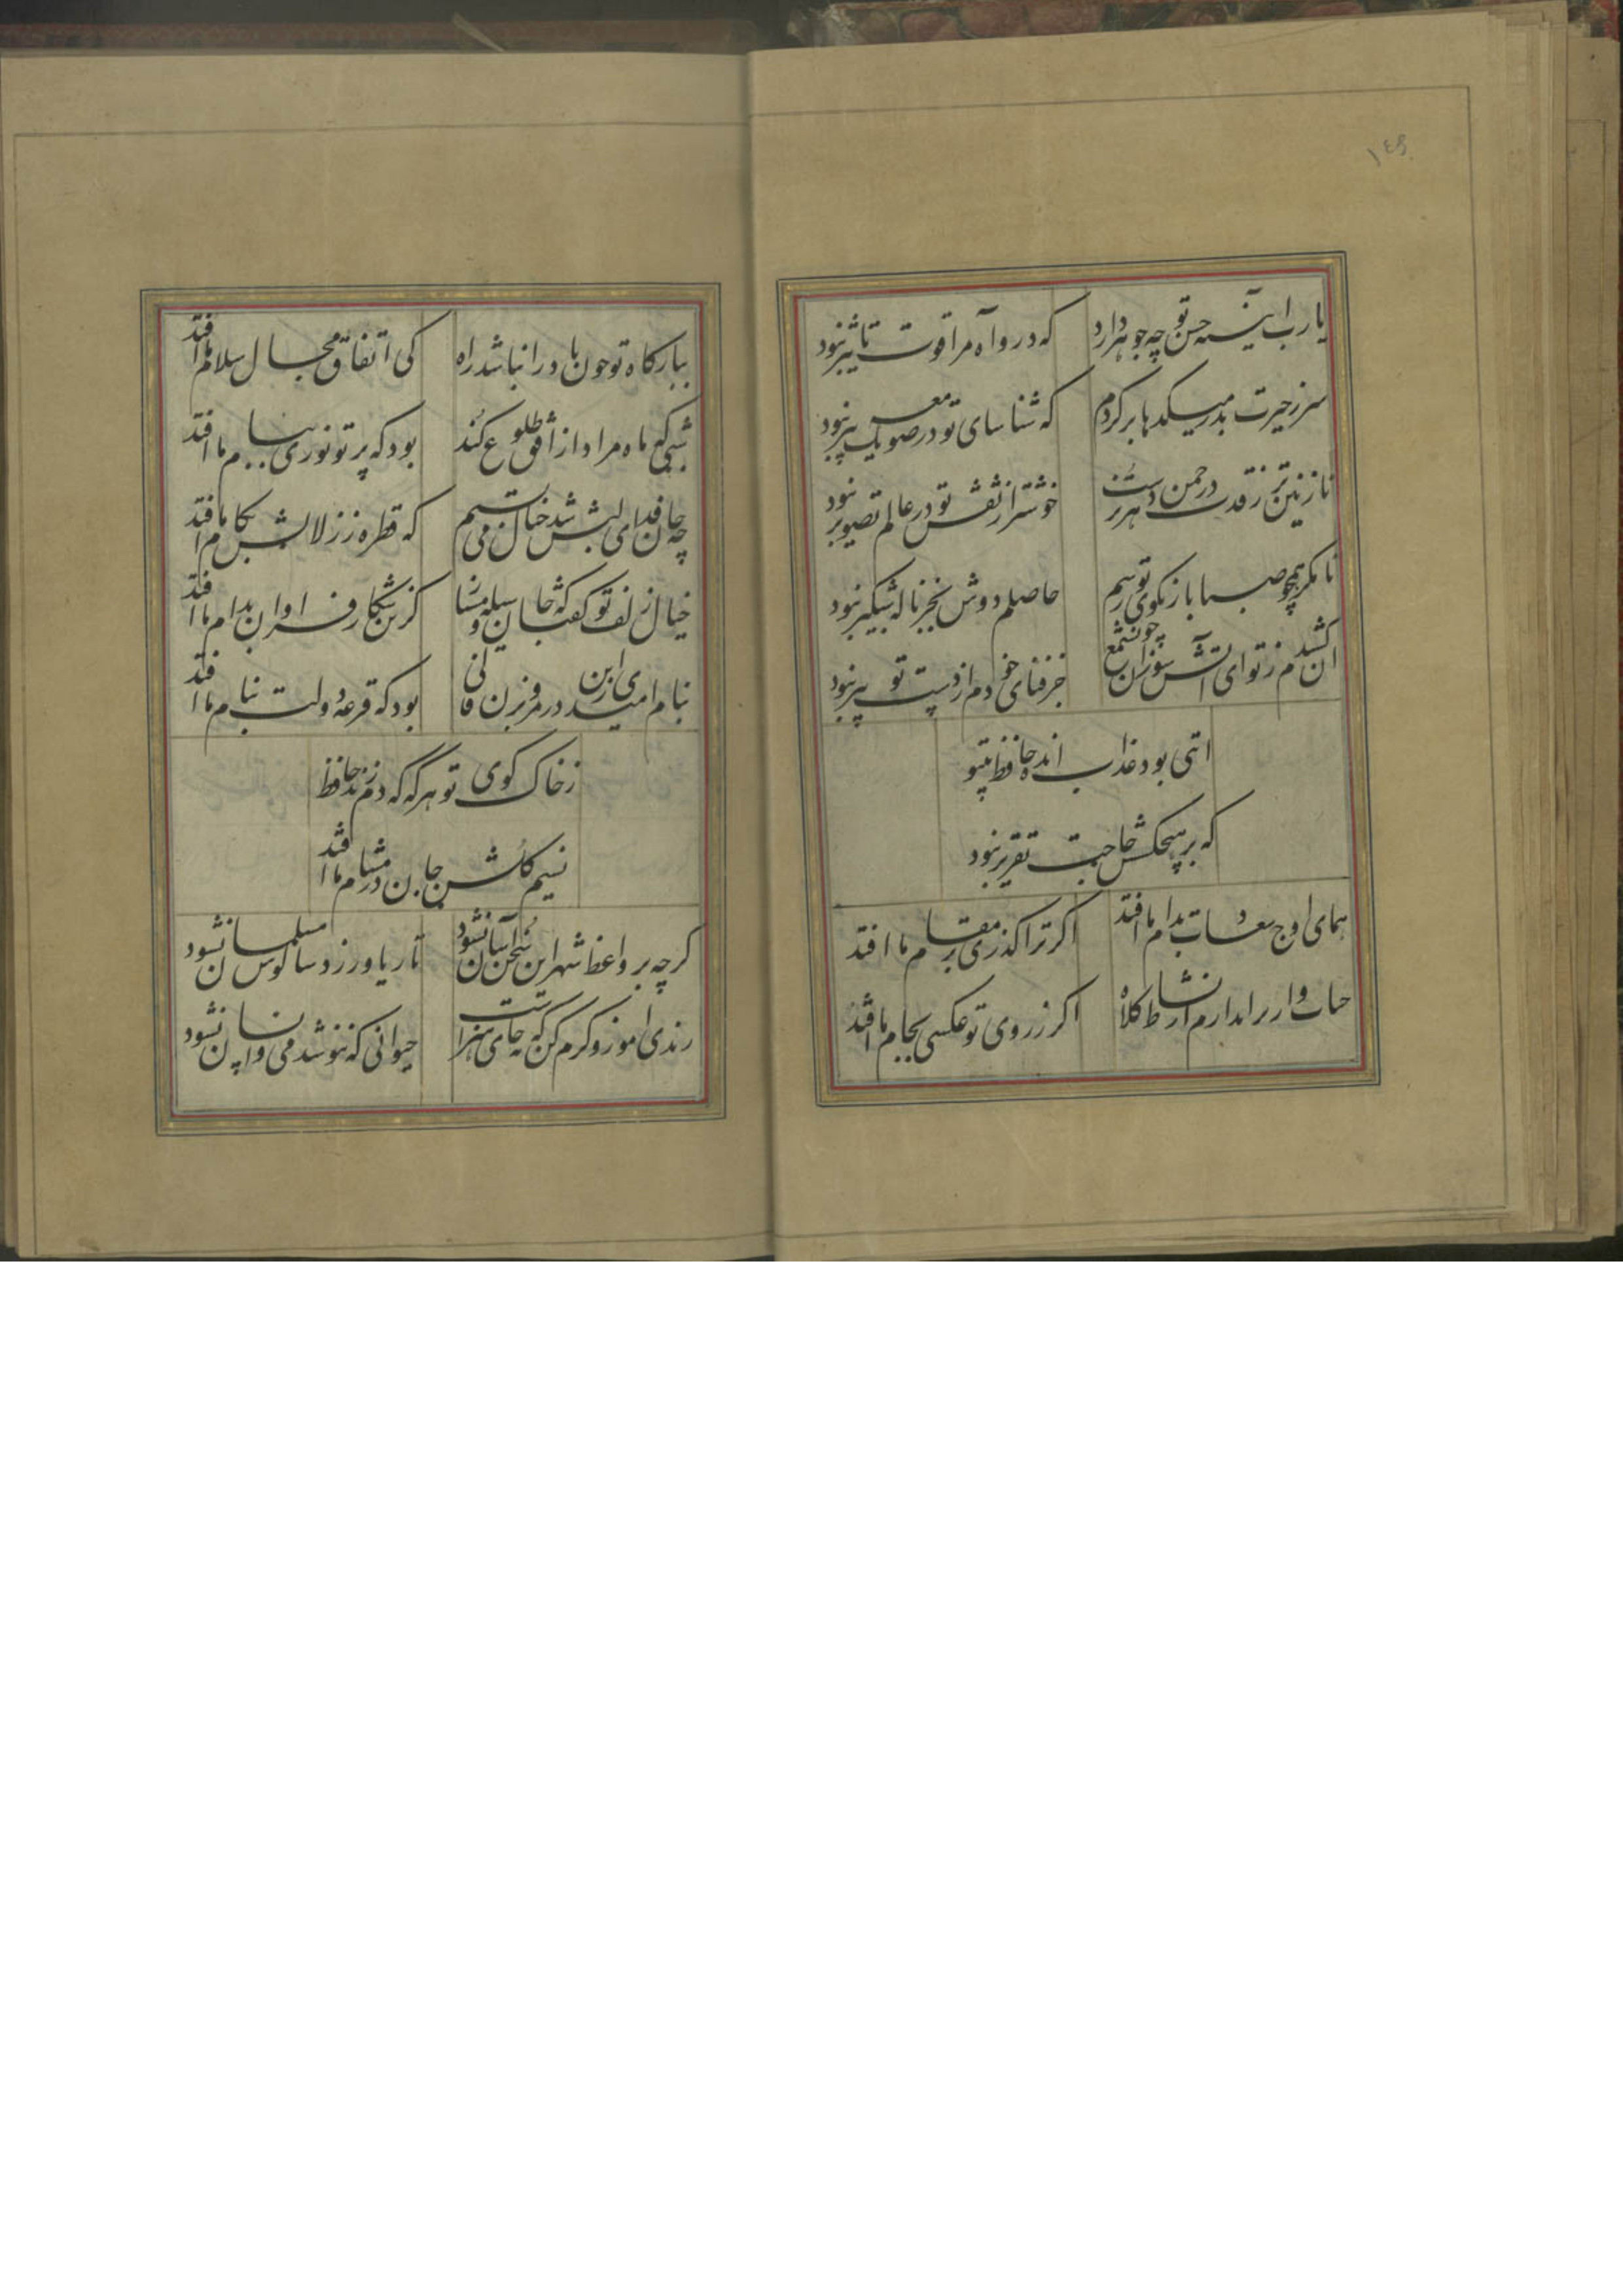 ۱۴۶
یارب آیینه حسن تو چه جوهر دارد
که درو آه مرا قوت تاثیر نبود
سر ز حیرت بدر میکدها بر کردم
که شناسای تو در صومعه یک پیر نبود
نازنین تر ز قدت در چمن دهر نرست
خوشتر از نقش تو در عالم تصویر نبود
تا مگر همچو صبا باز بکوی تو رسم
حاصلم دوش بجز ناله شبگیر نبود
آن کشیدم ز تو ای آتش سوزان چون شمع
جز فنای خودم از دست تو تدبیر نبود
آیتی بود عذاب انده حافظ بیتو
که بر هیچکسش حاجت تقریر نبود
همای اوج سعادت بدام ما افتد
اگر ترا گذری بر مقام ما افتد
حباب وار براندازم از نشاط کلاه
اگر ز روی تو عکسی بجام ما افتد
ببارگاه تو چون باد را نباشد راه
کی اتفاق مجال سلام ما افتد
شبی که ماه مراد از افق طلوع کند
بود که پرتو نوری ببام ما افتد
چه جان فدای لبش شد خیال می بستیم
که قطره ز زلالش بکام ما افتد
خیال زلف تو گفتا که جان وسیله مساز
کزین شکار فراوان بدام ما افتد
بنا امیدی ازین در مرو بزن فالی
بود که قرعه دولت بنام ما افتد
ز خاک کوی تو هرگه که دم زند حافظ
نسیم گلشن جان در مشام ما افتد
گرچه بر واعظ شهر این سخن آسان نشود
تا ریا ورزد و سالوس مسلمان نشود
رندی آموز و کرم کن که نه جای هنر است
حیوانی که ننوشد می و انسان نشود